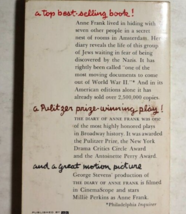 a top best-selling book!
Anne Frank lived in hiding with
seven other people in a secret
nest of rooms in Amsterdam. Her
diary reveals the life of this group
of Jews waiting in fear of being
discovered by the Nazis. It has
rightly been called "one of the
most moving documents to come
out of World War II."* And in its
American editions alone it has
already sold over 2,500,000 copies.
a Pulitzer prize-winning play!
THE DIARY OF ANNE FRANK was
one of the most highly honored plays
in Broadway history. It was awarded
the Pulitzer Prize, the New York
Drama Critics Circle Award
and the Antoinette Perry Award.
and a great motion picture
George Stevens' production of
THE DIARY OF ANNE FRANK is filmed
in CinemaScope and stars
Millie Perkins as Anne Frank.
*Philadelphia Inquirer
PUBLISHED BY